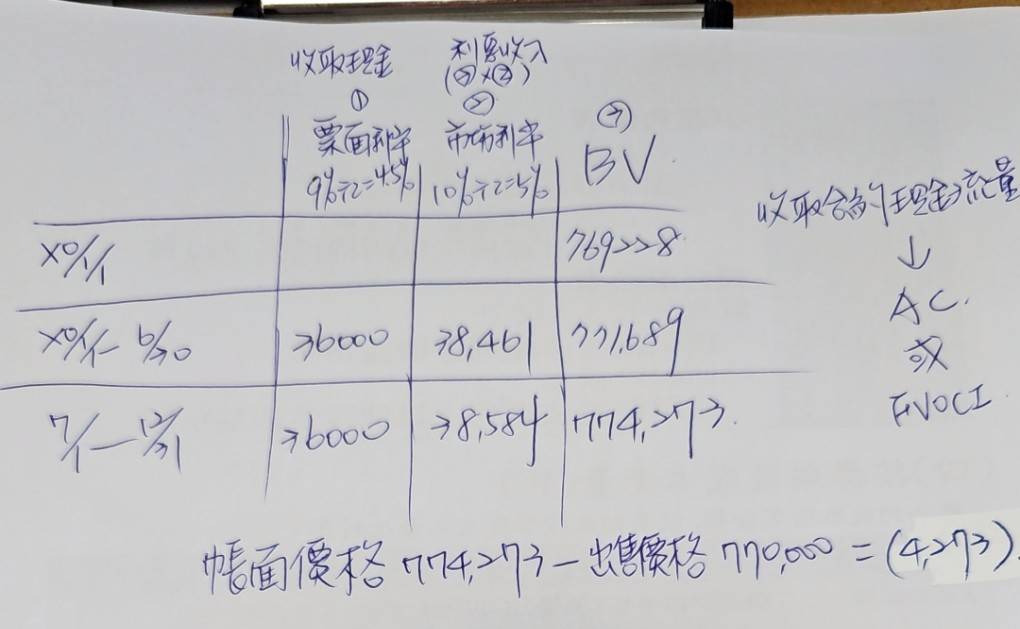 收取現金 利息收入
(③×②)
① ② ③
票面利率 市場利率 BV
9%÷2=4.5% 10%÷2=5%
收取合約現金流量
↓
AC.
或
FVOCI
X0/1/1 769228
X0/1/1- 6/30 36000 38,461 771,689
7/1-12/31 36000 38,584 774,273.
帳面價格 774,273 - 出售價格 770,000 = (4,273).